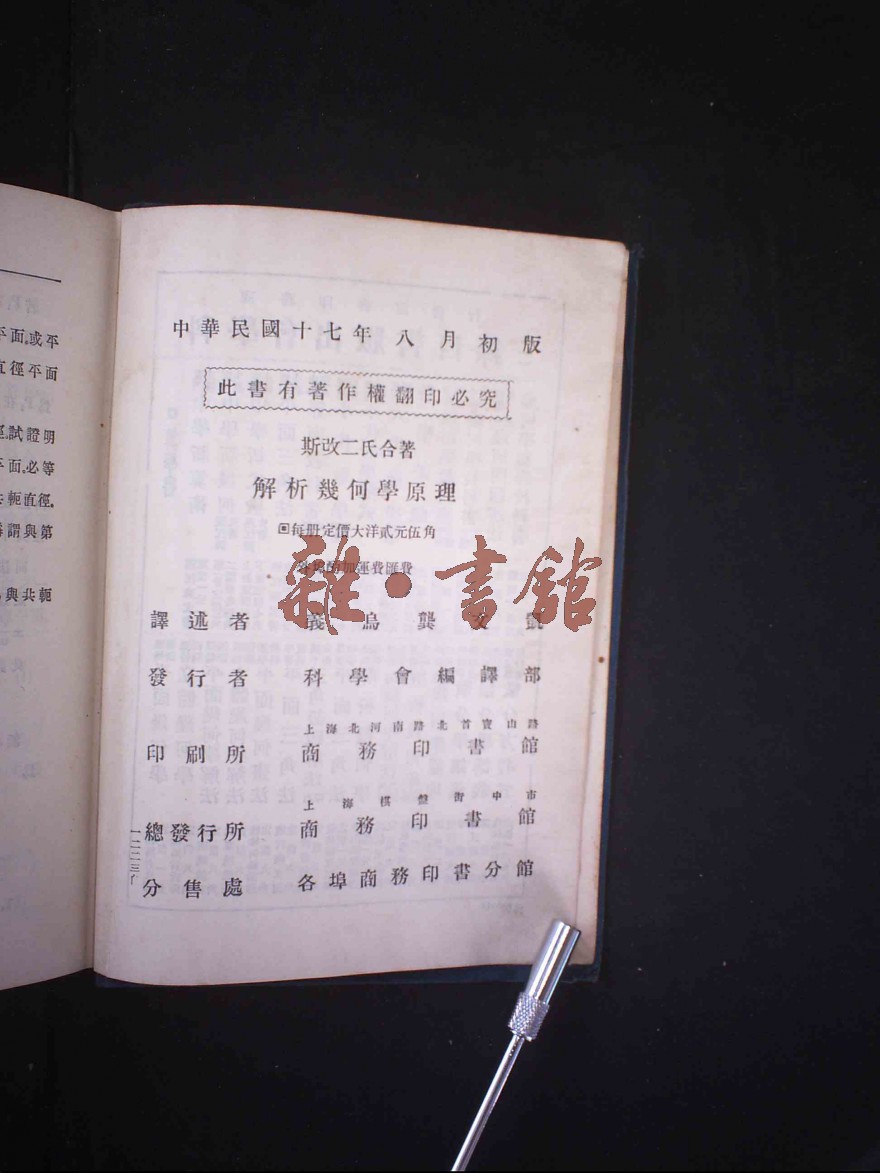 平面。或平
直徑平面
試證明
平面。必等
共軛直徑.
謂與第
與共軛
中華民國十七年八月初版
此書有著作權翻印必究
斯改二氏合著
解析幾何學原理
回每册定價大洋貳元伍角
加運費匯費
雜·書館
譯述者 義烏龔文凱
發行者 科學會編譯部
上海北河南路北首寶山路
印刷所 商務印書館
上海棋盤街中市
總發行所 商務印書館
分售處 各埠商務印書分館